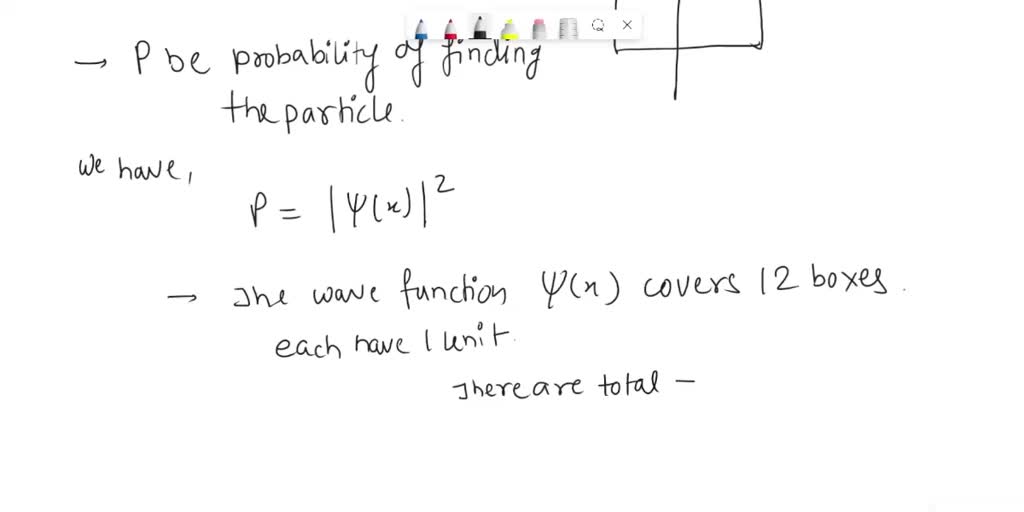 → P be probability of finding
the particle.
we have,
P = |Ψ(x)|²
→ The wave function Ψ(x) covers 12 boxes.
each have 1 unit.
There are total –